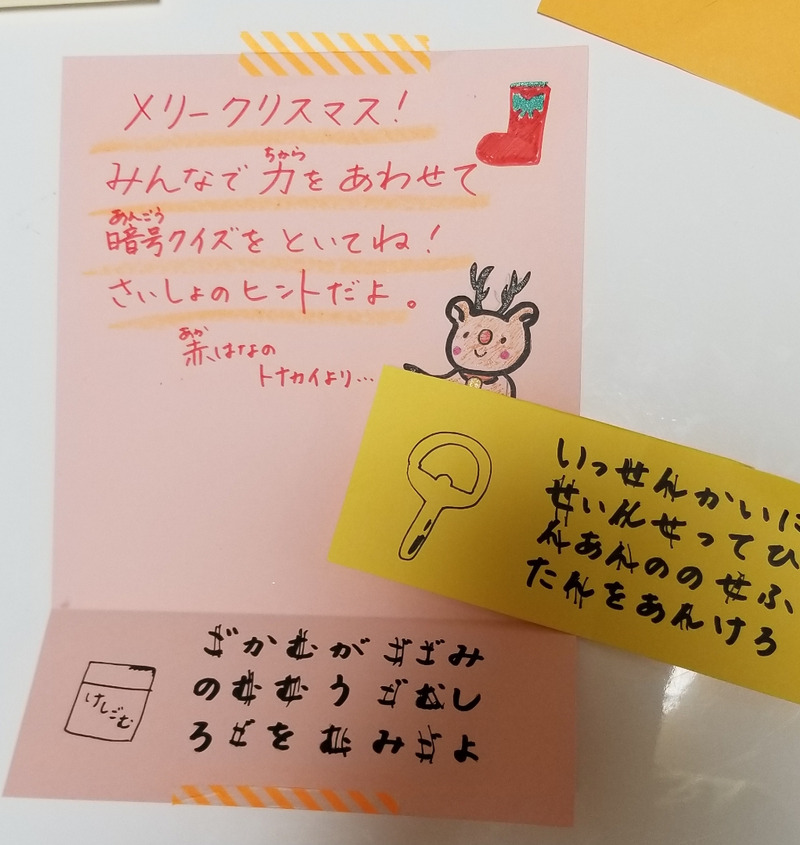 メリークリスマス!
ちから
みんなで力をあわせて
あんごう
暗号クイズをといてね!
さいしょのヒントだよ。
あか
赤はなの
トナカイより…
いっせんかいに
せいんせってひ
んあんののせふ
たんをあんけろ
けしごむ
ごかむがごごみ
のむむうごむし
ろごをむみごよ